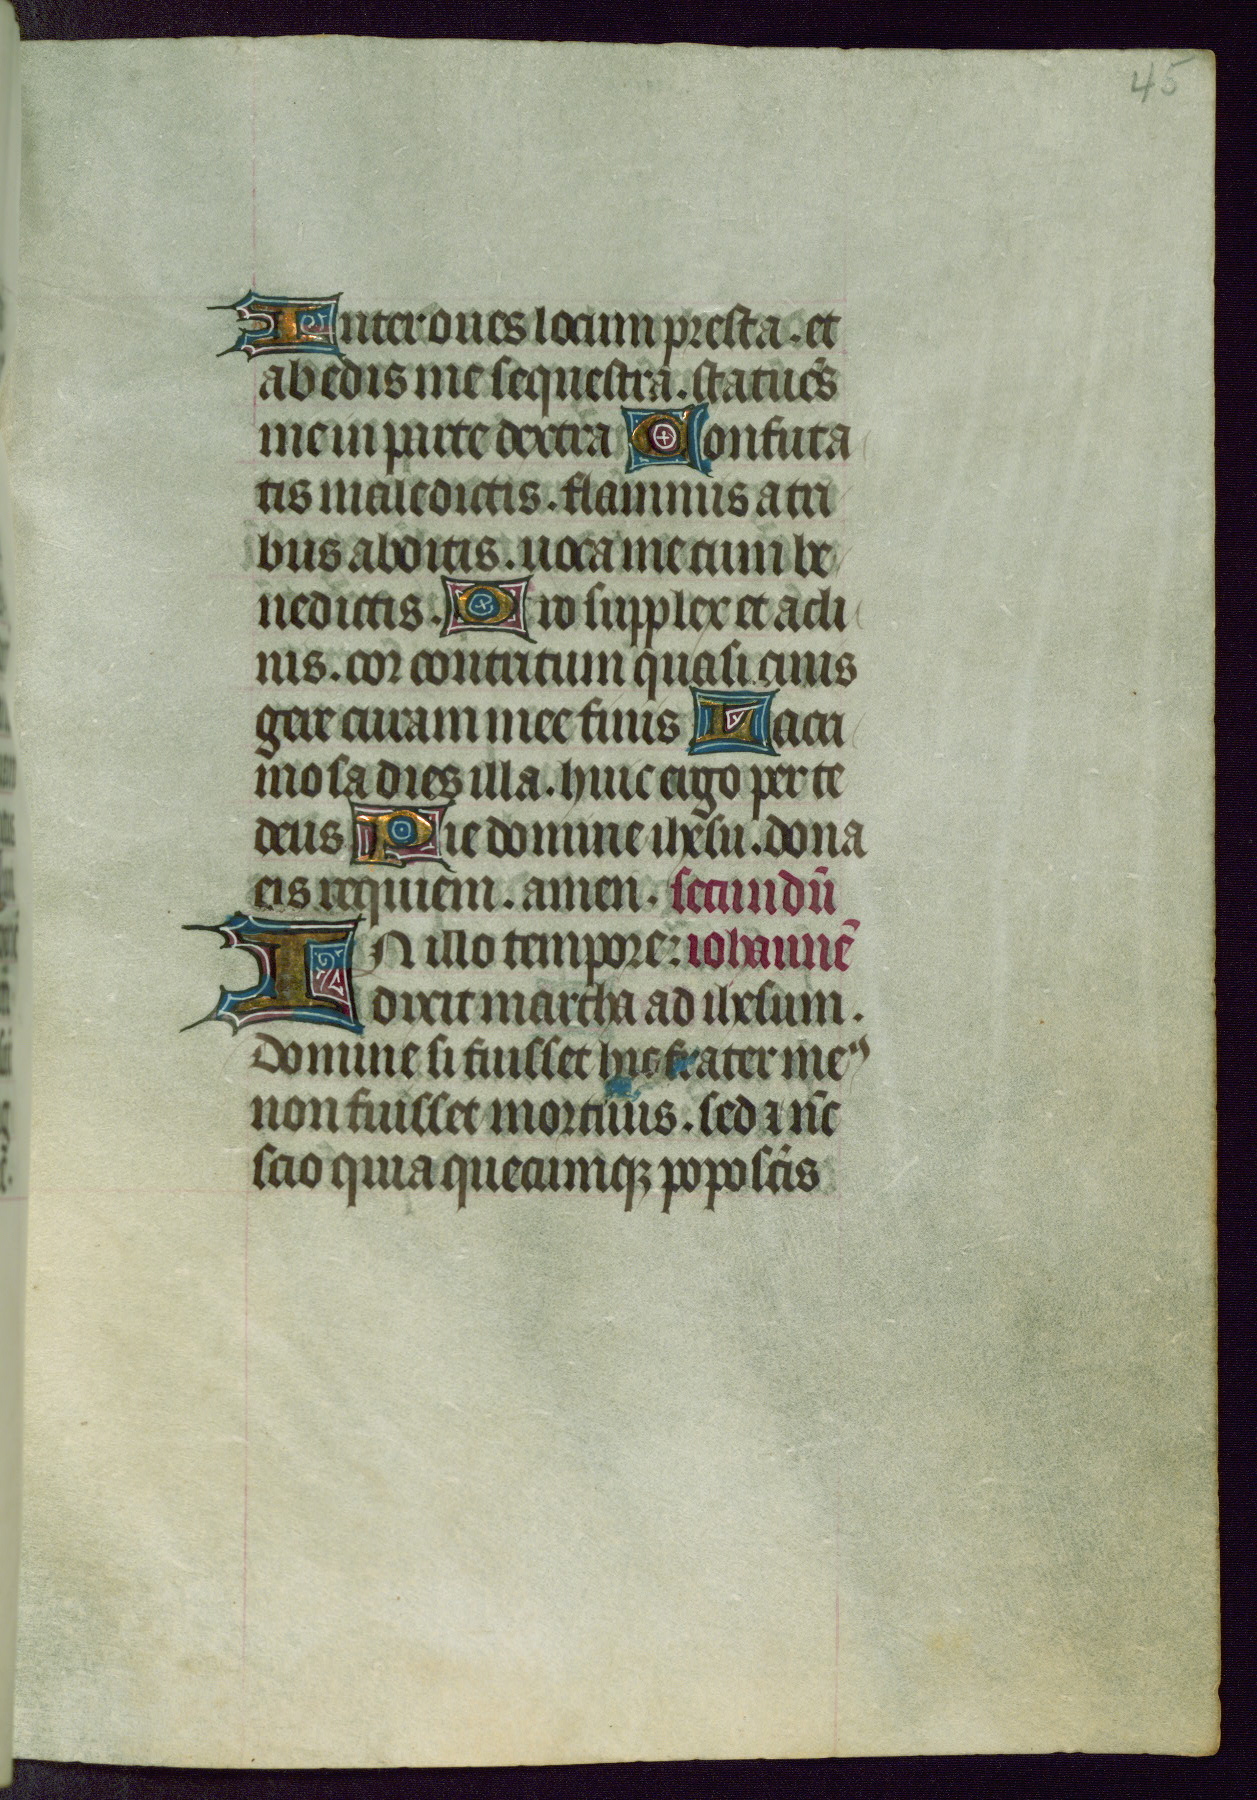 45
Inter oues locum presta . et
ab edis me sequestra . statuẽs
me in parte dextra Confuta
tis maledictis . flammis acri
bus abditis . uoca me cum be
nedictis . Oro supplex et acli
nis . cor contritum quasi cinis
gere curam mee finis Lacri
mosa dies illa . huic ergo per te
deus Pie domine ihesu . dona
eis requiem . amen . secundũ
In illo tempore : iohannẽ
dixit martha ad ihesum .
Domine si fuisset hic frater meꝰ
non fuisset mortuus . sed ⁊ nc̃
scio quia quecumqꝫ poposcis